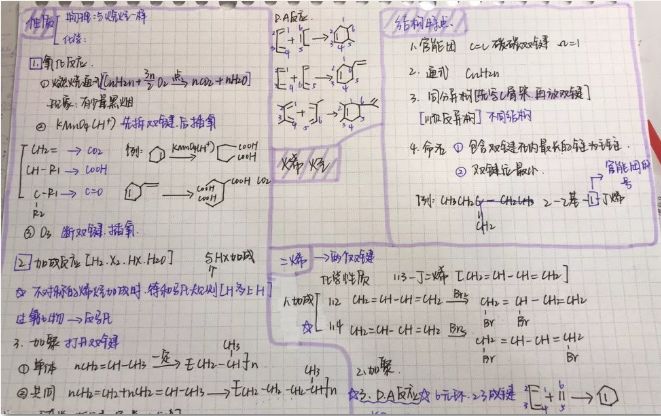 性质 物理：与烷烃一样
化性：
1.氧化反应.
①燃烧通式[CnH2n+3n/2 O2 点→ nCO2+nH2O]
现象：有少量黑烟
② KMnO4(H+) 先拆双键,后插氧
CH2= → CO2
CH-R1 → COOH
C-R1 → C=O
R2
例: KMnO4(H+) COOH
COOH
COOH COOH COOH CO2
③ O3 断双键.插氧.
2.加成反应[H2.X2.HX.H2O] 与HX加成
☆ 不对称的烯烃加成时.符合马氏规则[H多上H]
过氧化物→反马氏
3.加聚 打开双键
①单体 nCH2=CH-CH3 → [CH2-CH]n
CH3
②共同 nCH2=CH2+nCH2=CH-CH3 → [CH2-CH2-CH2-CH]n
CH3
D.A反应
烯烃
结构特点.
1.官能团 C=C 碳碳双键 Ω=1
2.通式 CnH2n
3.同分异构[先写C骨架.再放双键]
[顺反异构] 不同结构
4.命名 ①包含双键在内最长的链为主链
②双键位最小
官能团的
号
例: CH3CH2C-CH2CH3 2-乙基-1-丁烯
CH2
二烯 → 两个双键
化学性质 1.3-丁二烯 [CH2=CH-CH=CH2]
1.加成 1.2 CH2=CH-CH=CH2 Br2→ CH2-CH-CH=CH2
Br Br
☆ 1.4 CH2=CH-CH=CH2 Br2→ CH2-CH=CH-CH2
Br Br
2.加聚.
☆3.D.A反应☆ 6元环.2.3成键